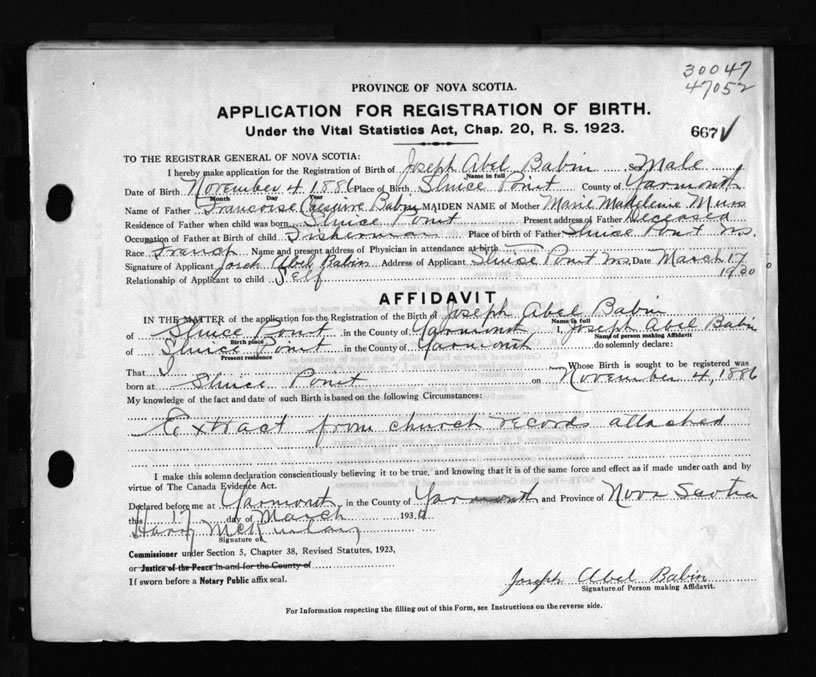 30047
47052
PROVINCE OF NOVA SCOTIA.
APPLICATION FOR REGISTRATION OF BIRTH.
Under the Vital Statistics Act, Chap. 20, R. S. 1923.
667
TO THE REGISTRAR GENERAL OF NOVA SCOTIA:
I hereby make application for the Registration of Birth of Joseph Abel Babin Sex Male
Name in full
Date of Birth November 4 1886 Place of Birth Sluice Point County of Yarmouth
Month Day Year
Name of Father Francoise Babin MAIDEN NAME of Mother Marie Madeleine
Residence of Father when child was born Sluice Point Present address of Father Deceased
Occupation of Father at Birth of child Fisherman Place of birth of Father Sluice Point N.S.
Race French Name and present address of Physician in attendance at birth
Signature of Applicant Joseph Abel Babin Address of Applicant Sluice Point N.S. Date March 17
1930
Relationship of Applicant to child Self
AFFIDAVIT
IN THE MATTER of the application for the Registration of the Birth of Joseph Abel Babin
Name in full
of Sluice Point in the County of Yarmouth I, Joseph Abel Babin
Birth place Name of person making Affidavit
of Sluice Point in the County of Yarmouth do solemnly declare:
Present residence
That I Whose Birth is sought to be registered was
born at Sluice Point on November 4, 1886
My knowledge of the fact and date of such Birth is based on the following Circumstances:
Extract from church records attached
I make this solemn declaration conscientiously believing it to be true, and knowing that it is of the same force and effect as if made under oath and by
virtue of The Canada Evidence Act.
Declared before me at Yarmouth in the County of Yarmouth and Province of Nova Scotia
this 17 day of March 1930
Harry
Signature of
Commissioner under Section 5, Chapter 38, Revised Statutes, 1923,
or Justice of the Peace in and for the County of
If sworn before a Notary Public affix seal.
Joseph Abel Babin
Signature of Person making Affidavit.
For Information respecting the filling out of this Form, see Instructions on the reverse side.